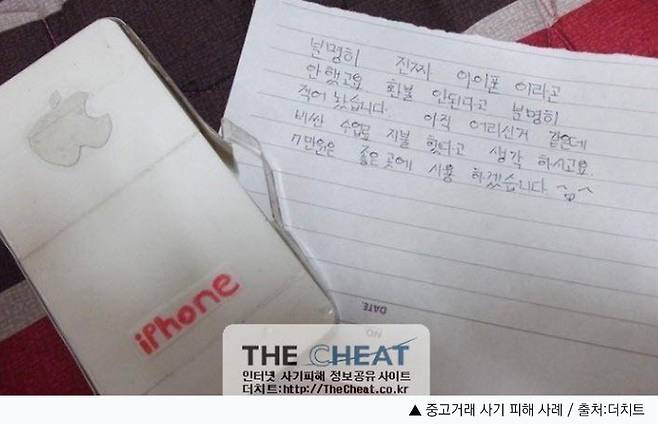 분명히 진짜 아이폰 이라고
안 했고요. 환불 안된다고 분명히
적어 놨습니다. 아직 어리신거 같은데
비싼 수업료 지불 했다고 생각 하시고요.
7만원은 좋은 곳에 사용 하겠습니다 ^_^
iPhone
DATE
NO.
THE CHEAT
인터넷 사기피해 정보공유 사이트
더치트:http://TheCheat.co.kr
▲ 중고거래 사기 피해 사례 / 출처:더치트